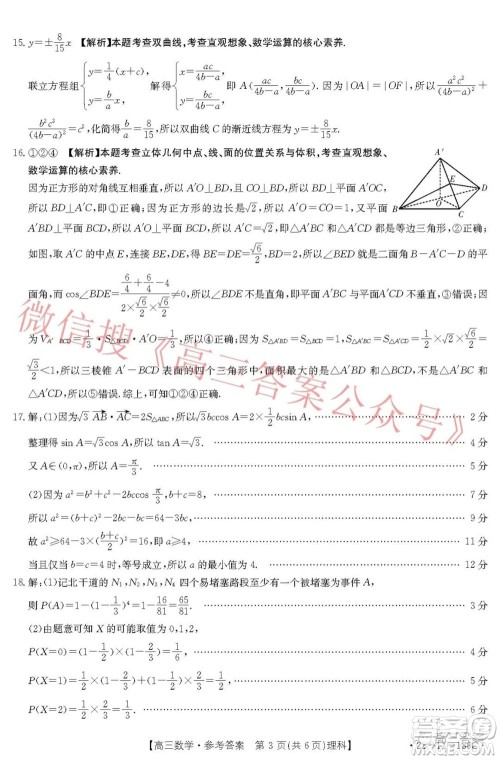 15. y=±8/15 x 【解析】本题考查双曲线,考查直观想象、数学运算的核心素养.
联立方程组{y=1/4(x+c), y=b/a x, 解得{x=ac/(4b-a), y=bc/(4b-a), 即 A(ac/(4b-a), bc/(4b-a)). 因为|OA|=|OF|,所以 a²c²/(4b-a)²+
b²c²/(4b-a)²=c²,化简得 b/a=8/15,所以双曲线 C 的渐近线方程为 y=±8/15 x.
16. ①②④ 【解析】本题考查立体几何中点、线、面的位置关系与体积,考查直观想象、
数学运算的核心素养.
因为正方形的对角线互相垂直,所以 A′O⊥BD,OC⊥BD,所以 BD⊥平面 A′OC,
所以 A′C⊥BD,即①正确;因为正方形的边长是√2,所以 A′O=CO=1,又平面
A′BD⊥平面 BCD,所以 A′O⊥平面 BCD,即 A′O⊥OC,所以 A′C=√2,所以
△A′BC 和△A′CD 都是等边三角形,②正确;
如图,取 A′C 的中点 E,连接 BE,DE,得 BE=DE=√6/2,所以∠BED 就是二面角 B-A′C-D 的平
面角,而 cos∠BDE=(6/4+6/4-4)/(2×√6/2×√6/2)≠0,所以平面 A′BC 与平面 A′CD 不垂直,③错误;因
为 V_{A′-BCD}=1/3·S_{△BCD}·A′O=1/3,④正确;因为 S_{△A′BC}=S_{△A′CD}=1/2×√2×√6/2=
√3/2<1,所以三棱锥 A′-BCD 表面的四个三角形中,面积最大的是△BCD 和△A′BD,不是△A′BC
和△A′CD,所以⑤错误. 综上,可知①②④正确.
17. 解:(1)因为√3 AB·AC=2S_{△ABC},所以√3bccos A=2×1/2 bcsin A, 2分
整理得 sin A=√3cos A,所以 tan A=√3. 4分
又 A∈(0,π),所以 A=π/3. 5分
(2)因为 a²=b²+c²-2bccos π/3,b+c=8, 7分
所以 a²=(b+c)²-2bc-bc=64-3bc, 9分
故 a²≥64-3×((b+c)/2)²=16,即 a≥4, 11分
当且仅当 b=c=4 时,等号成立,所以 a 的最小值为 4. 12分
18. 解:(1)记北干道的 N₁,N₂,N₃,N₄ 四个易堵塞路段至少有一个被堵塞为事件 A,
则 P(A)=1-(1-1/3)⁴=1-16/81=65/81. 3分
(2)由题意可知 X 的可能取值为 0,1,2,
P(X=0)=(1-1/2)×(1-2/3)=1/6, 4分
P(X=1)=1/2×(1-2/3)+(1-1/2)×2/3=1/2, 5分
P(X=2)=1/2×2/3=1/3. 6分
【高三数学·参考答案 第 3 页(共 6 页)理科】
微信搜《高三答案公众号》